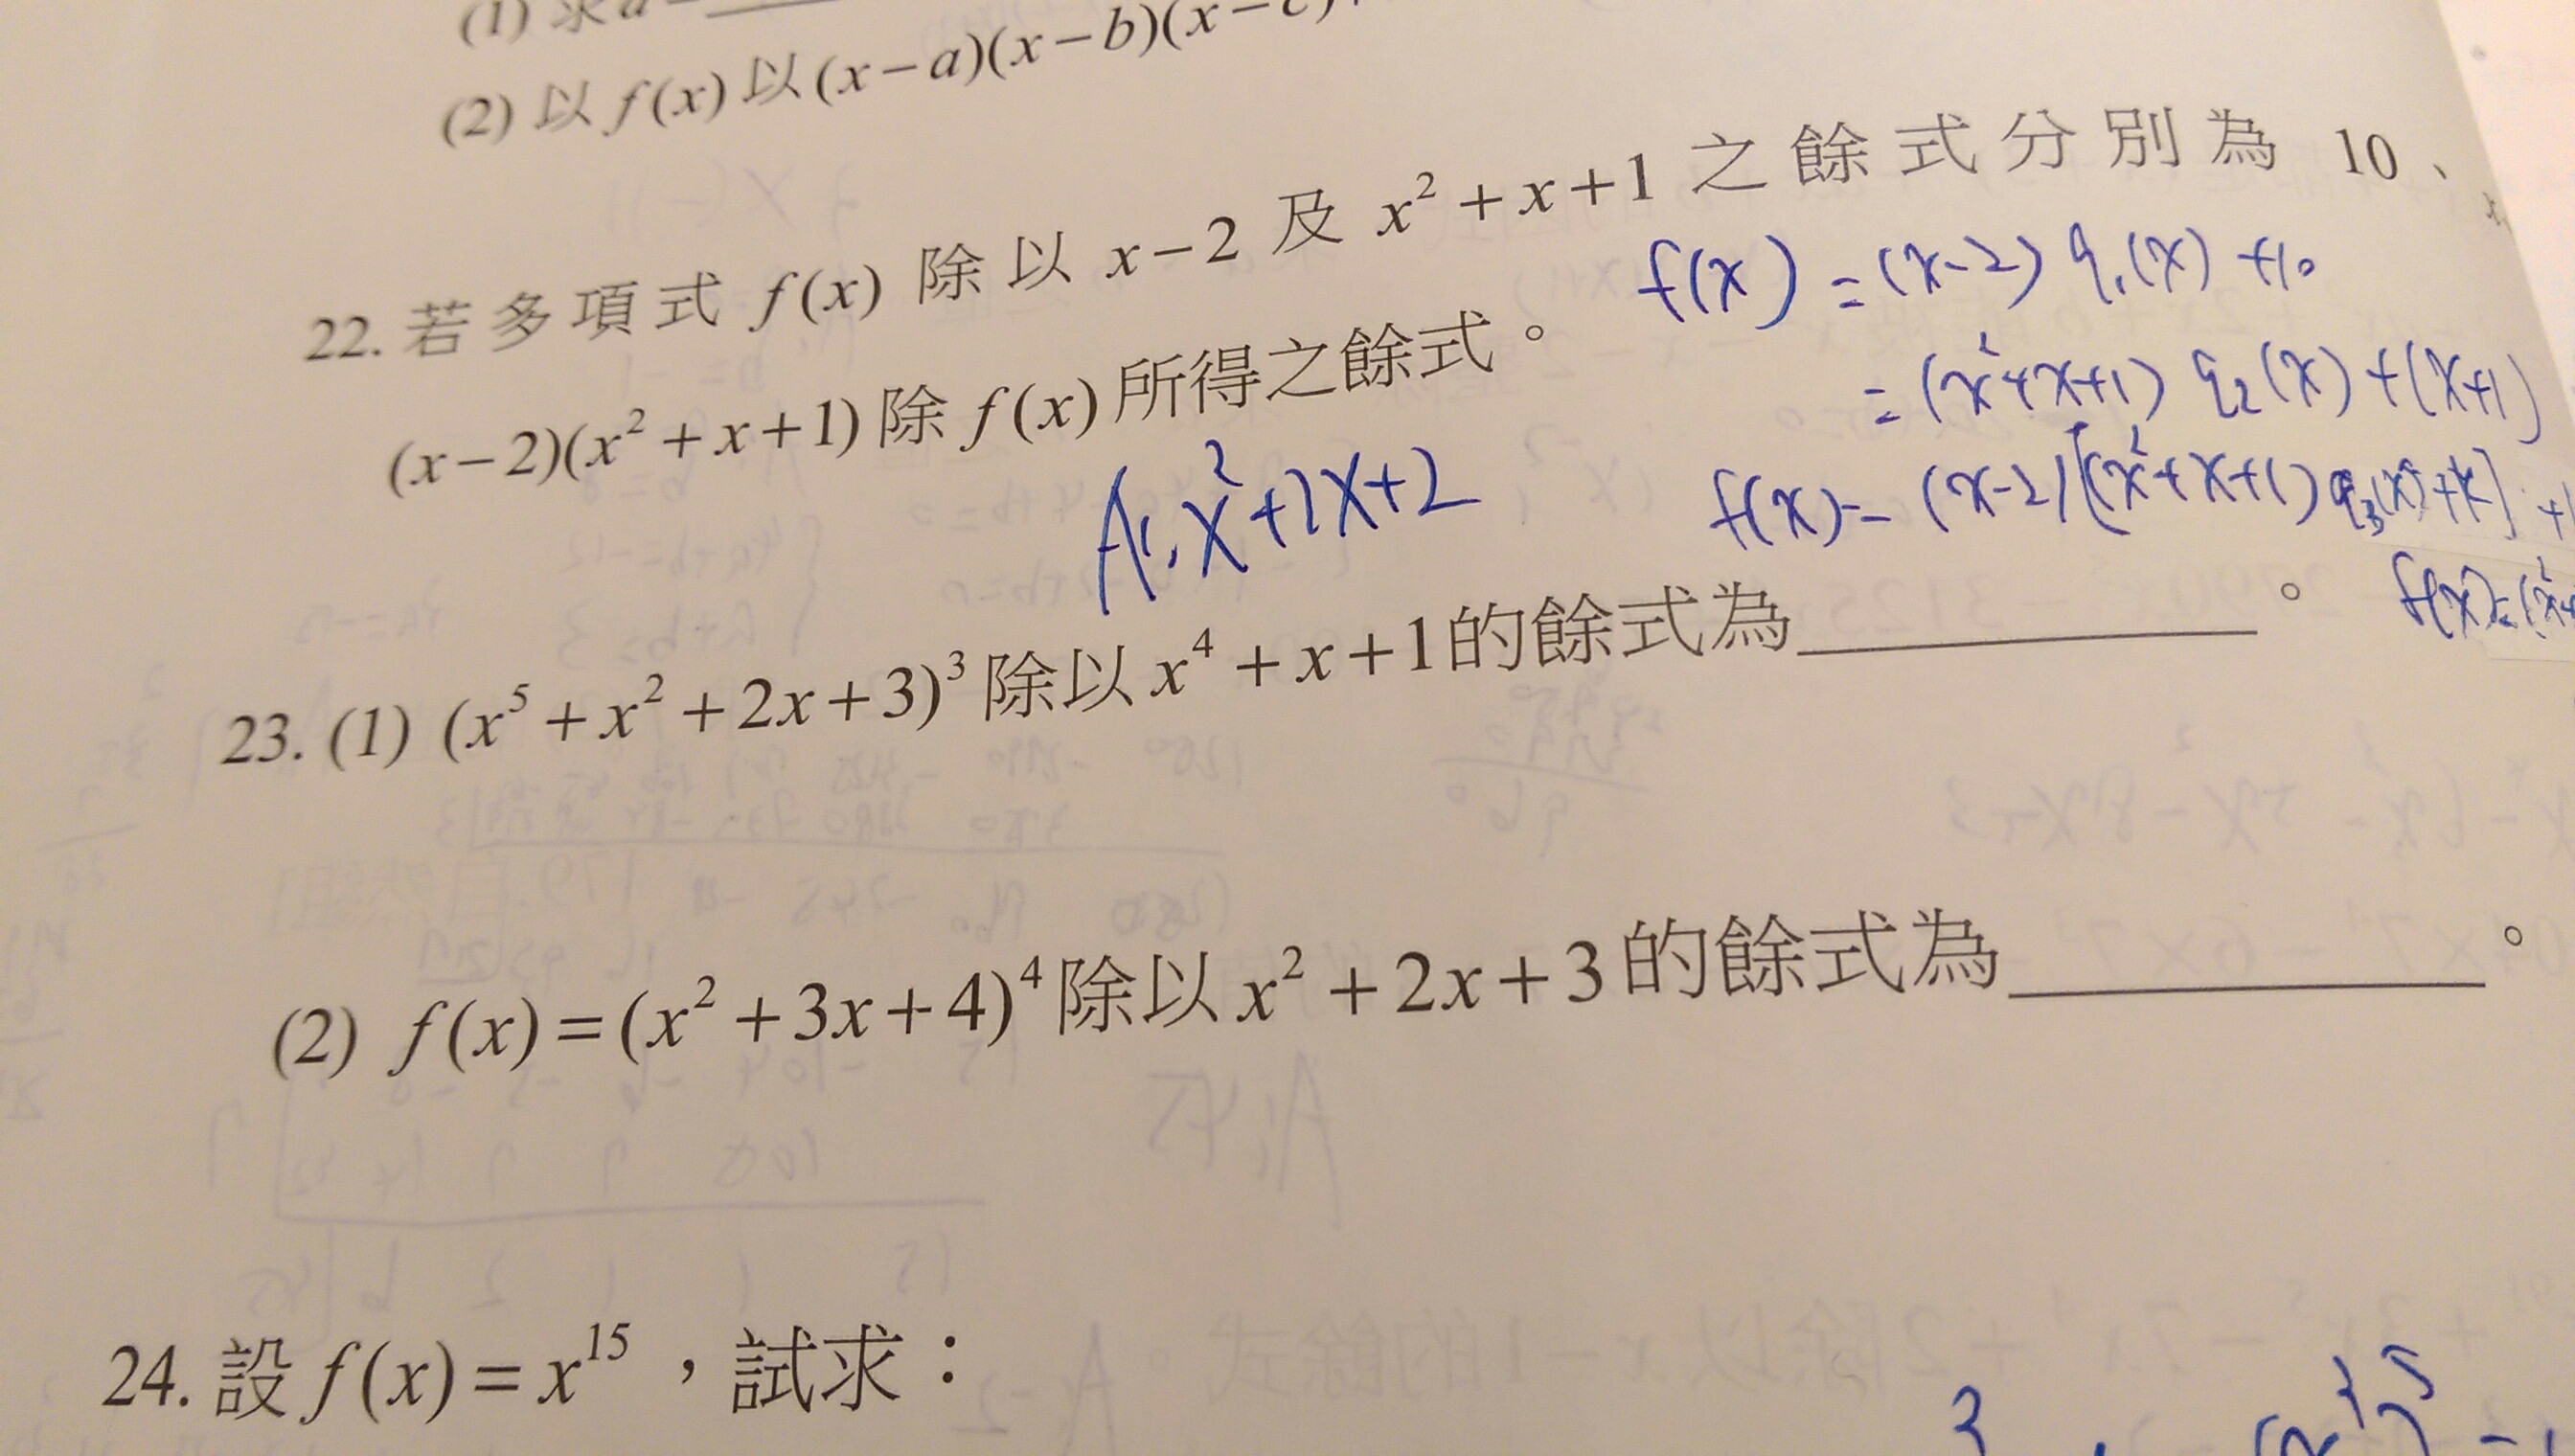 (1) 求a
(2) 以 f(x) 以 (x−a)(x−b)(x−c)
22. 若多項式 f(x) 除以 x−2 及 x²+x+1 之餘式分別為 10、
(x−2)(x²+x+1) 除 f(x) 所得之餘式。
f(x) = (x-2) q₁(x) +10
= (x²+x+1) q₂(x) + (x+1)
f(x) = (x-2)[(x²+x+1) q₃(x)+k] +1
A: x²+2x+2
f(x)=(x²+
23. (1) (x⁵+x²+2x+3)³ 除以 x⁴+x+1 的餘式為__________。
(2) f(x)=(x²+3x+4)⁴ 除以 x²+2x+3 的餘式為__________。
24. 設 f(x)=x¹⁵,試求: